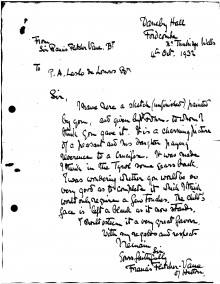 Daneby Hall
Fordcombe
Nr Tunbridge Wells
4th Oct. 1932
From
Sir Francis Fletcher Vane. Bt
To P. A. Laslo de Lomos Esqr
Sir,
I have here a sketch (unfinished) painted
by you, and given by to whom I
think you gave it. It is a charming picture
of a peasant and his daughter paying
reverence to a Crucifix. It was made
I think in the Tyrol some years back.
I was wondering whether you would be so
very good as to complete it which I think
would only require a few touches. The child's
face is left a blank as it now stands.
I should esteem it a very great favour.
With my apologies and respects
I remain
Sir
Yours faithfully
Francis Fletcher-Vane
of Hutton